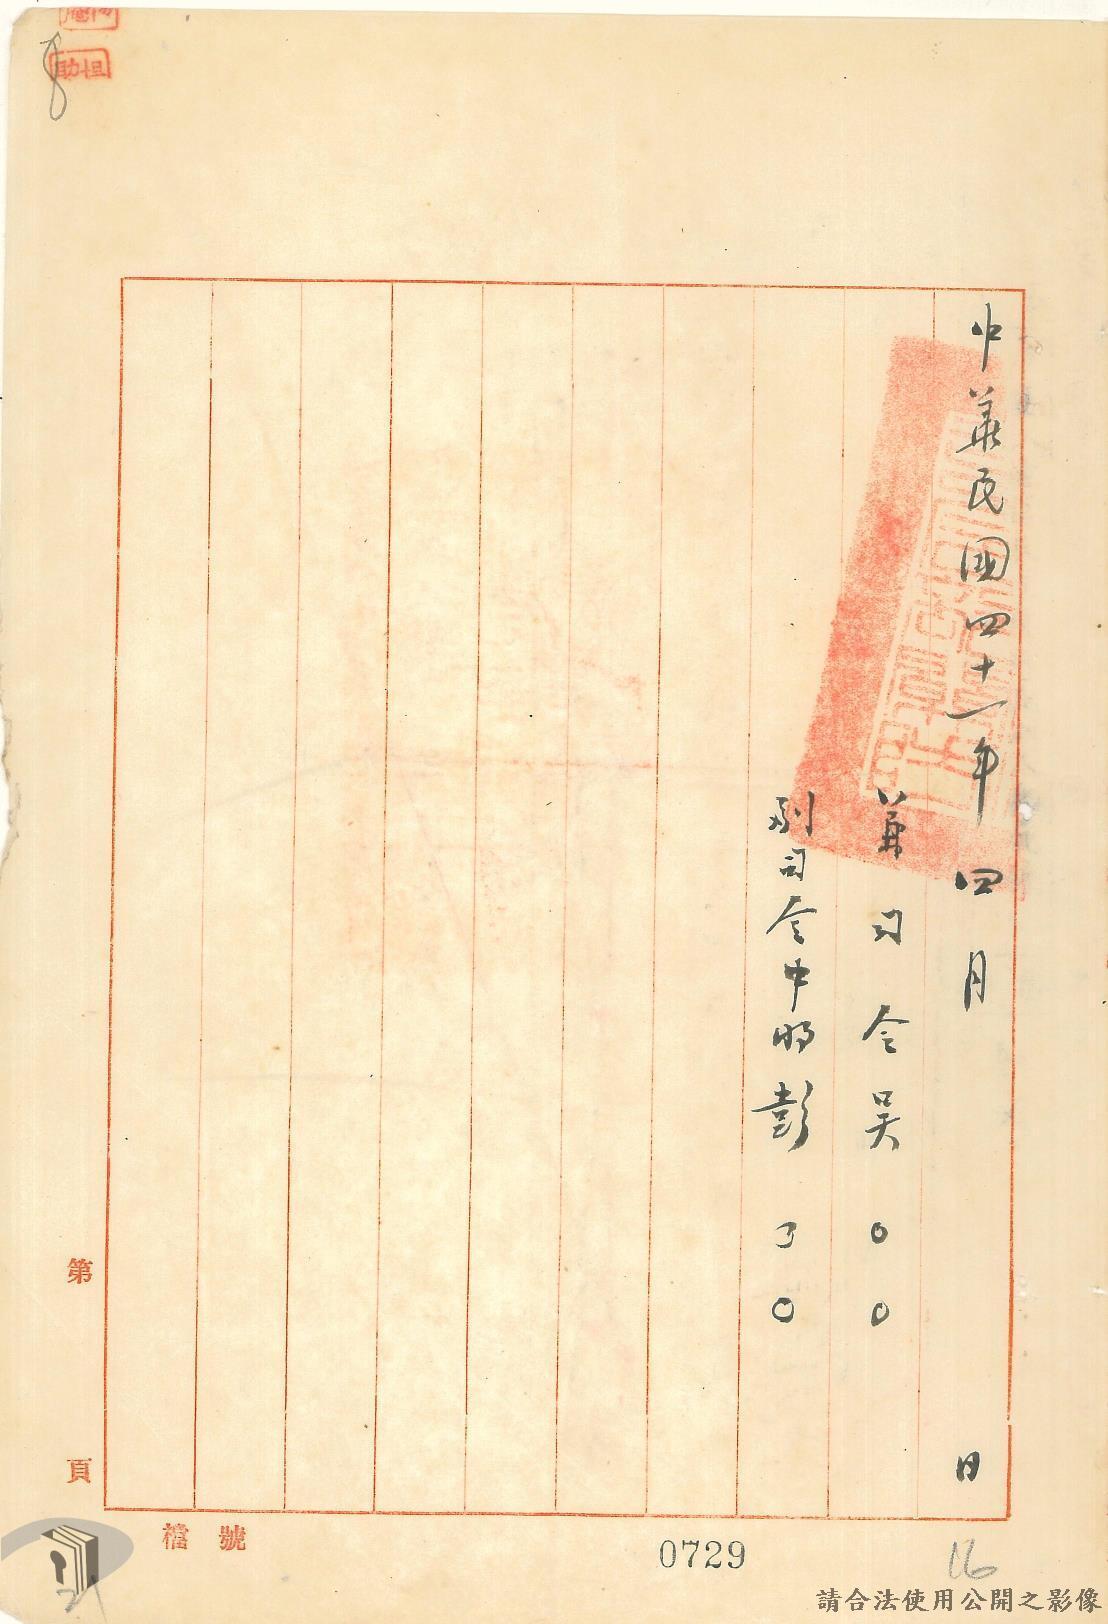 中華民國四十一年四月 日
兼司令吳〇〇
副司令中將彭〇〇
第 頁
檔號
0729
16
請合法使用公開之影像